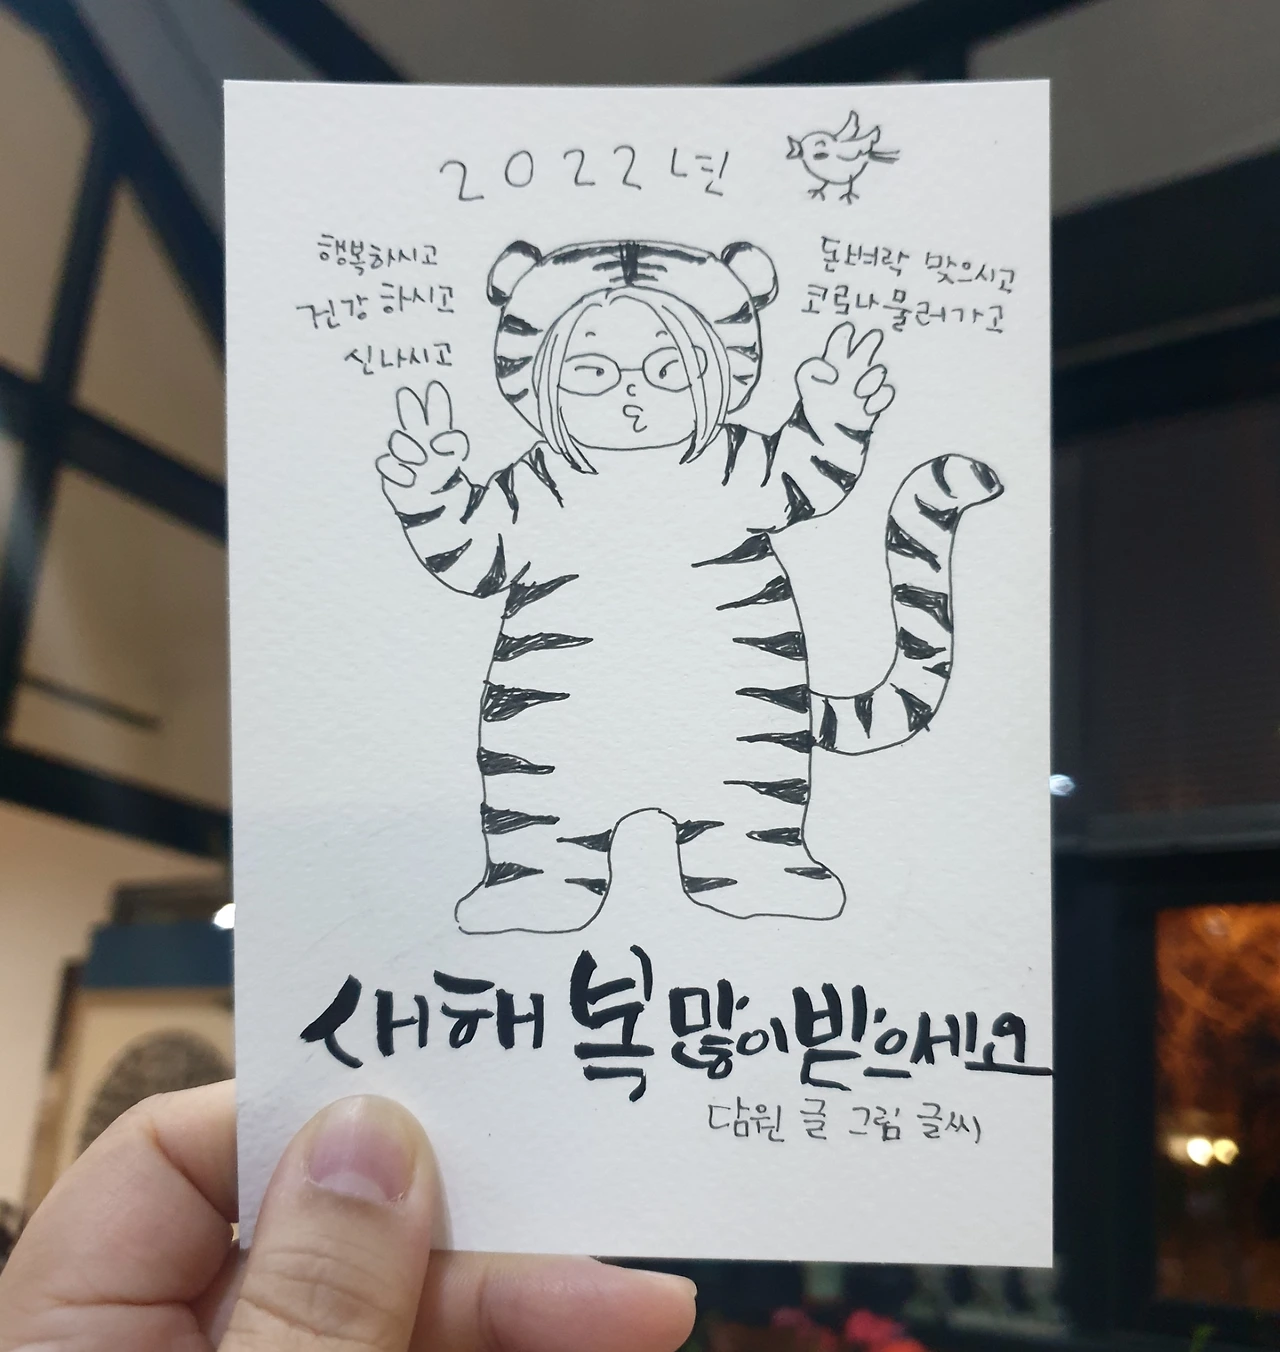 2022년
행복하시고
건강하시고
신나시고
돈벼락 맞으시고
코로나 물러가고
새해 복 많이 받으세요
담원 글 그림 글씨